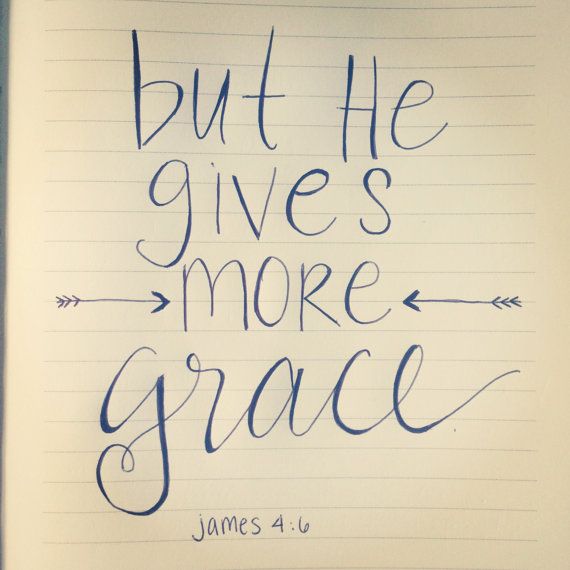 but He
gives
MORE
grace.
james 4:6